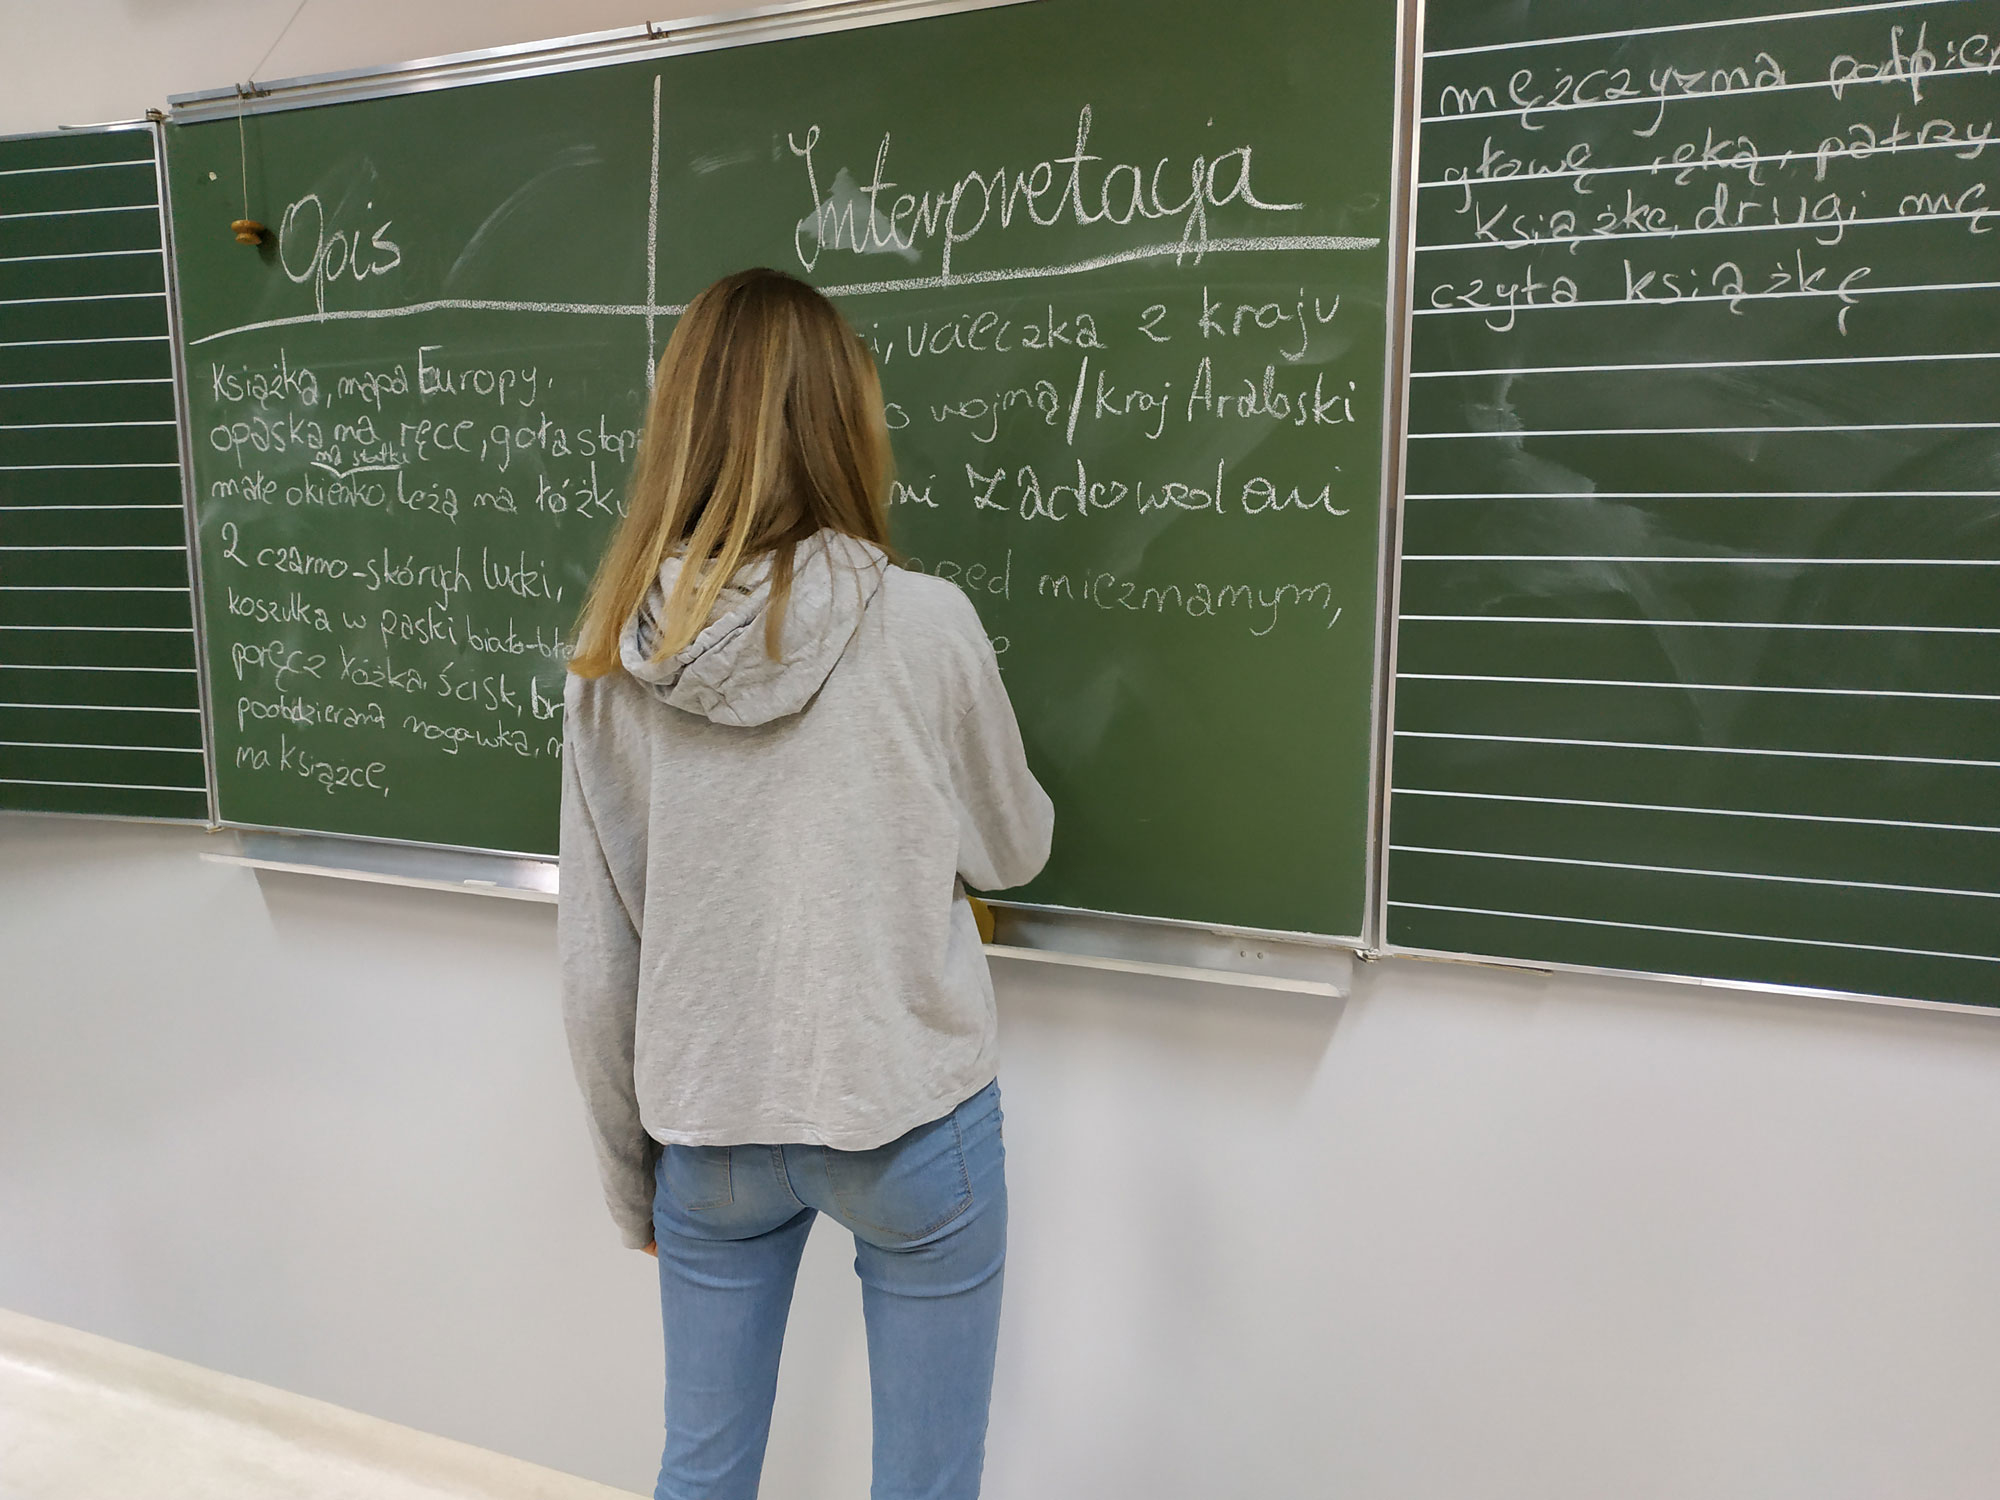 Opis
Książka, mapa Europy,
opaska na ręce, goła stopa
na statku
małe okienko, leżą na łóżku
2 czarno-skórych ludzi,
koszulka w paski biało-błę
poręcz łóżka, ścisk, br
poobdzierana nogawka, n
na książce,
Interpretacja
i, ucieczka z kraju
o wojną/kraj Arabski
ni zadowoleni
przed nieznanym,
mężczyzna podpier
głowę ręką, patrzy
książkę, drugi mę
czyta książkę